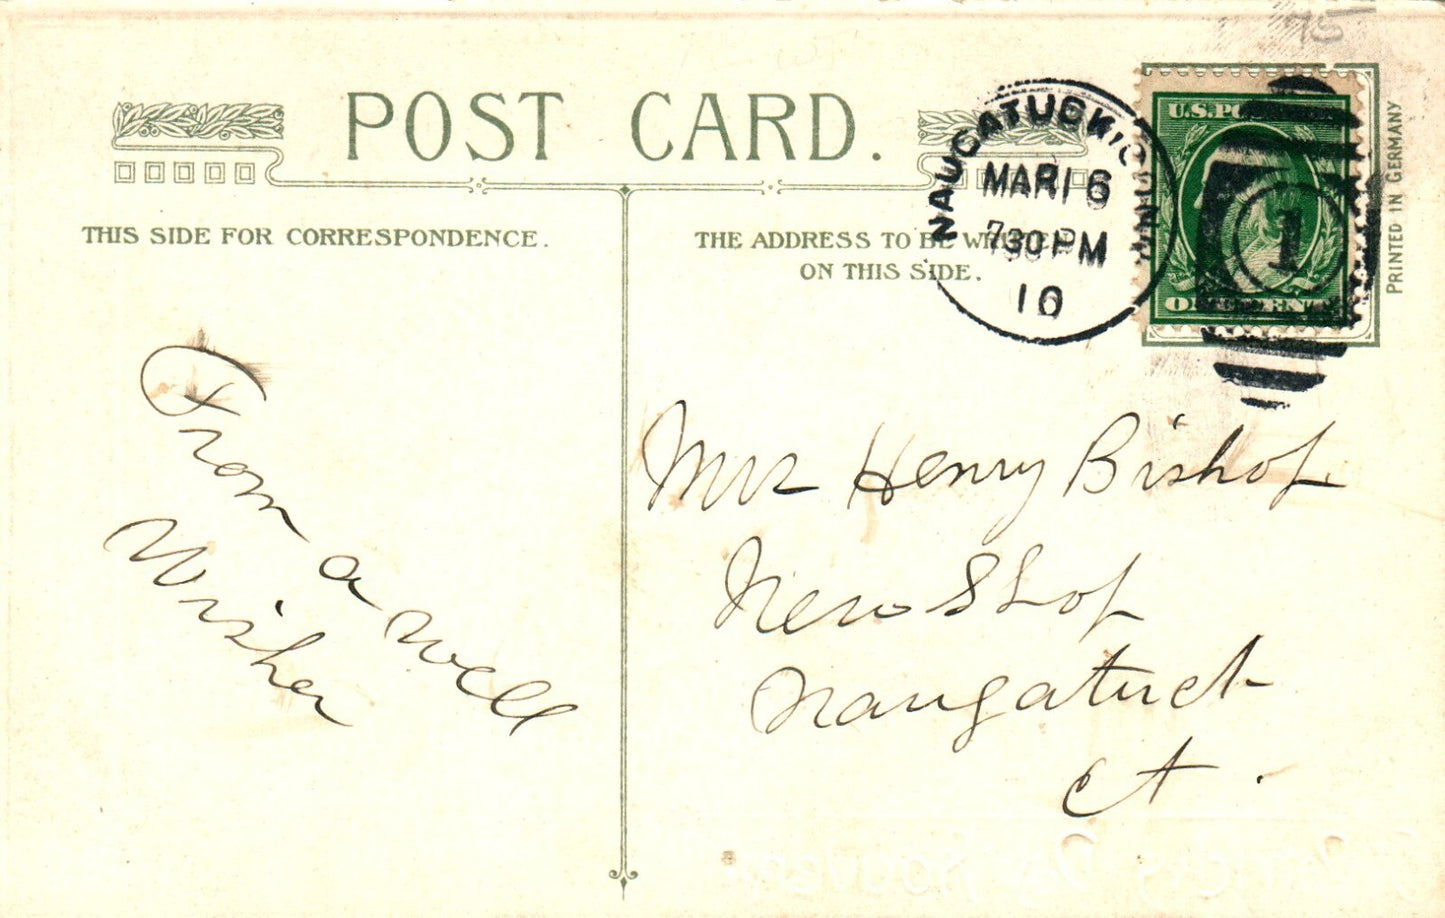 78
POST CARD.
THIS SIDE FOR CORRESPONDENCE.
THE ADDRESS TO BE WRITTEN
ON THIS SIDE.
NAUGATUCK, CONN.
MAR 16
730 PM
10
U.S. POSTAGE
1
ONE CENT
PRINTED IN GERMANY
From a well
Wisher
Mrs Henry Bishop
New Shop
Naugatuck
Ct.